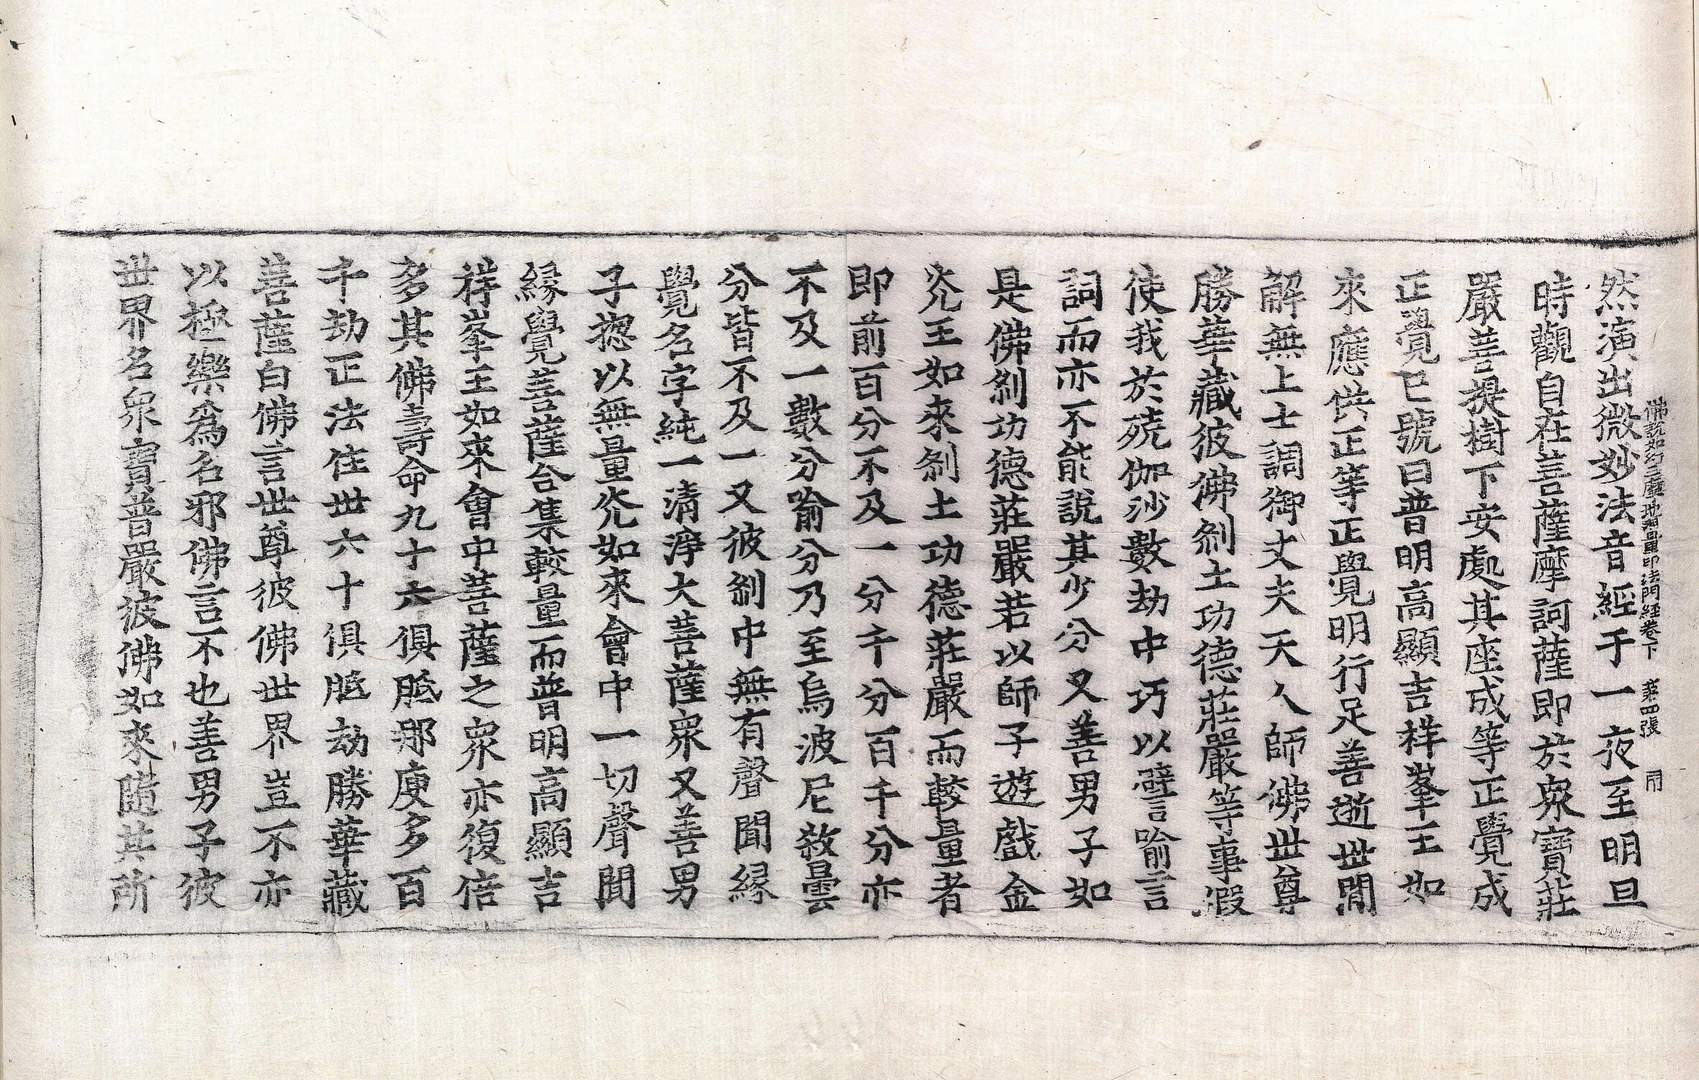 佛說如幻三摩地無量印法門經卷下 第四張
然演出微妙法音經于一夜至明旦
時觀自在菩薩摩訶薩即於衆寶莊
嚴菩提樹下安處其座成等正覺成
正覺已號曰普明高顯吉祥峯王如
來應供正等正覺明行足善逝世間
解無上士調御丈夫天人師佛世尊
勝華藏彼佛刹土功德莊嚴等事假
使我於殑伽沙數劫中巧以譬喻言
詞而亦不能說其少分又善男子如
是佛刹功德莊嚴若以師子遊戲金
光王如來刹土功德莊嚴而較量者
即前百分不及一分千分百千分亦
不及一數分喻分乃至烏波尼殺曇
分皆不及一又彼刹中無有聲聞緣
覺名字純一清淨大菩薩衆又善男
子揔以無量光如來會中一切聲聞
緣覺菩薩合集較量而普明高顯吉
祥峯王如來會中菩薩之衆亦復倍
多其佛壽命九十六俱胝那庾多百
千劫正法住世六十俱胝劫勝華藏
菩薩白佛言世尊彼佛世界豈不亦
以極樂爲名邪佛言不也善男子彼
世界名衆寶普嚴彼佛如來隨其所